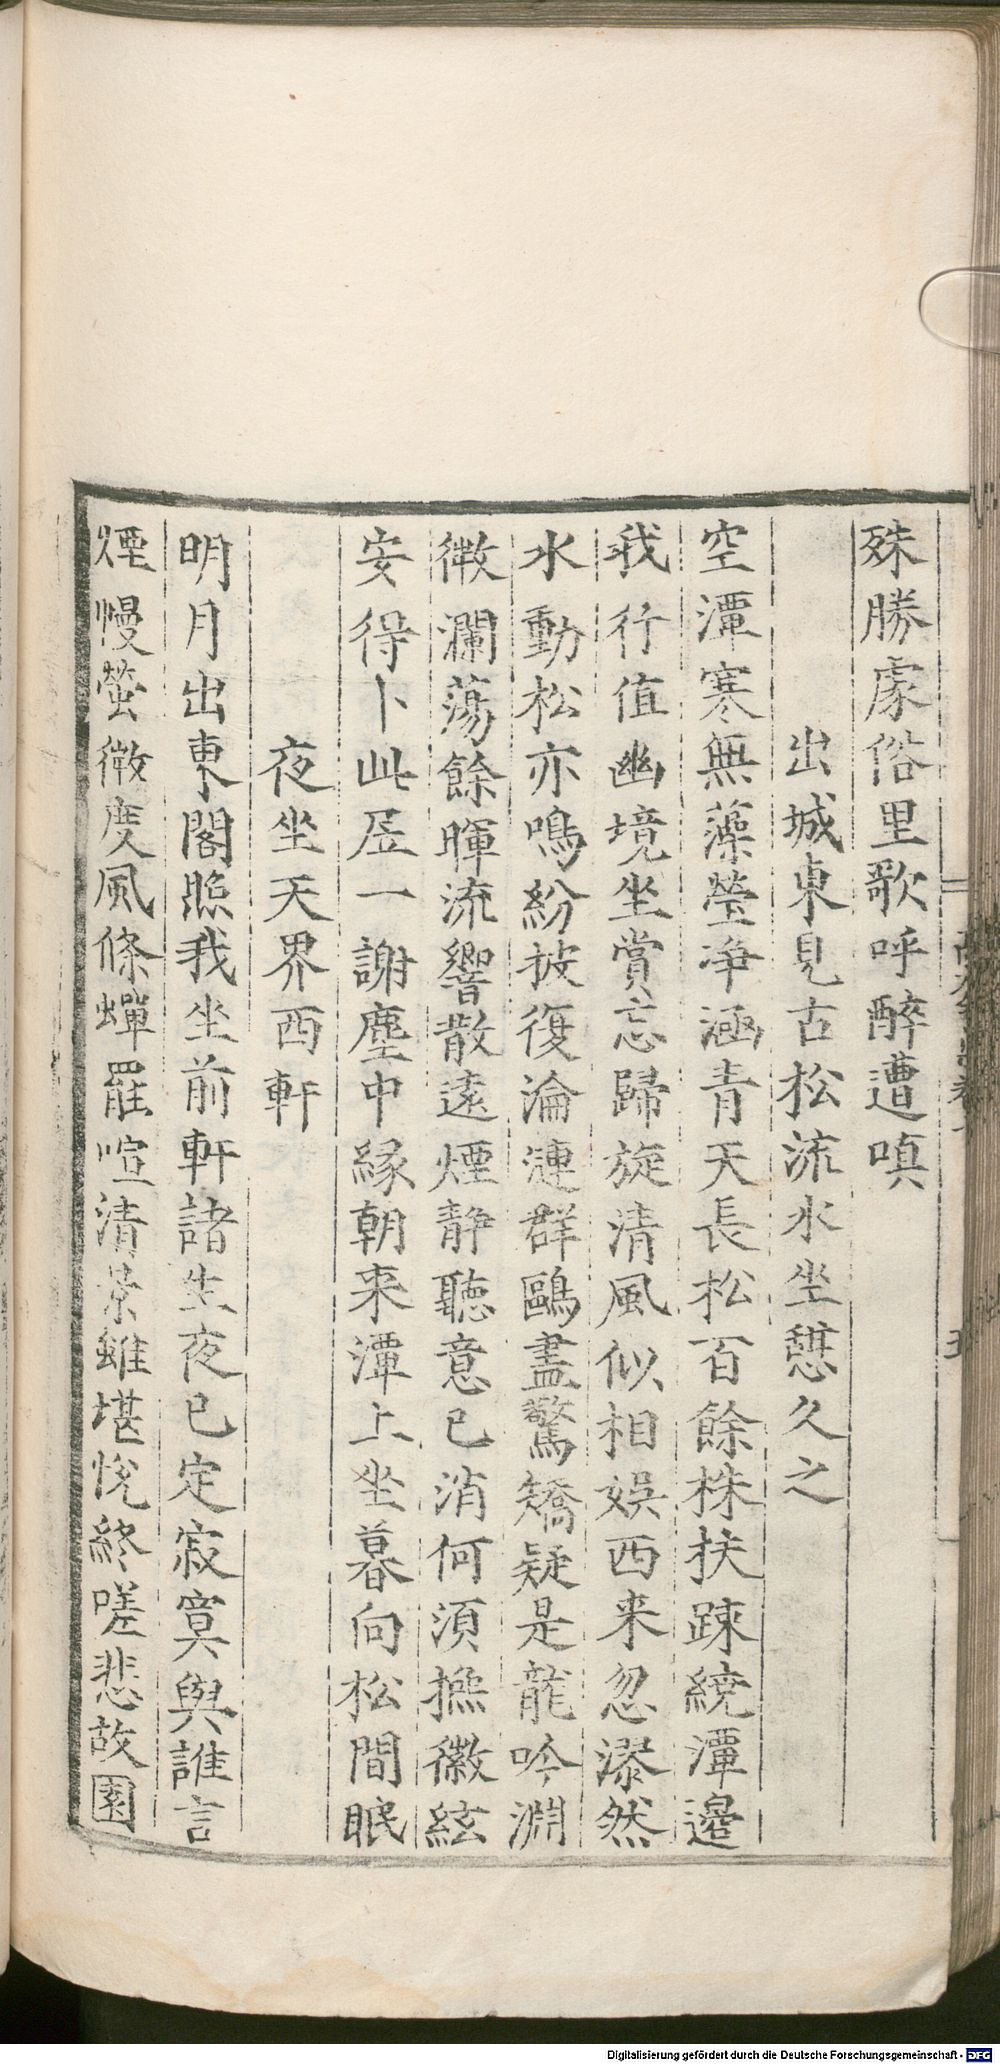 殊勝處俗里歌呼醉遭嗔
出城東見古松流水坐憇久之
空潭寒無藻瑩净涵青天長松百餘株扶踈繞潭邉
我行值幽境坐賞忘歸旋清風似相娯西来忽漻然
水動松亦鳴紛披復淪漣群鷗盡驚矯疑是龍吟淵
微瀾蕩餘暉流響散逺煙静聽意已消何湏撫徽絃
安得卜此居一謝塵中縁朝来潭上坐暮向松間眠
夜坐天界西軒
明月出東閣照我坐前軒諸生夜已定寂寞與誰言
煙幔螢微度風條蟬罷喧清景雖堪悦終嗟悲故園
Digitalisierung gefördert durch die Deutsche Forschungsgemeinschaft - DFG